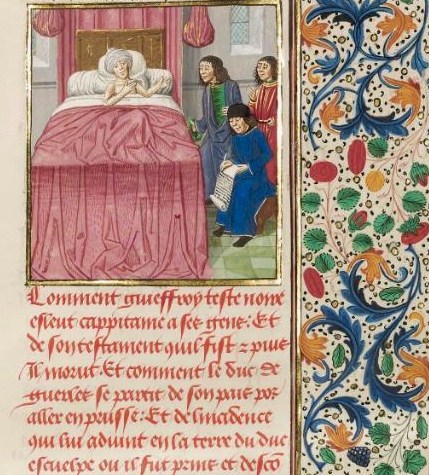 Comment guieffroy teste noire
esleut cappitaine a ses gens: Et
de son testament quil fist 2 puis
Il morut. Et comment le duc de
guerles se partit de son pais por
aller en prusse: Et de lincidence
qui lui aduint en la terre du duc
ou il fut prins et desco